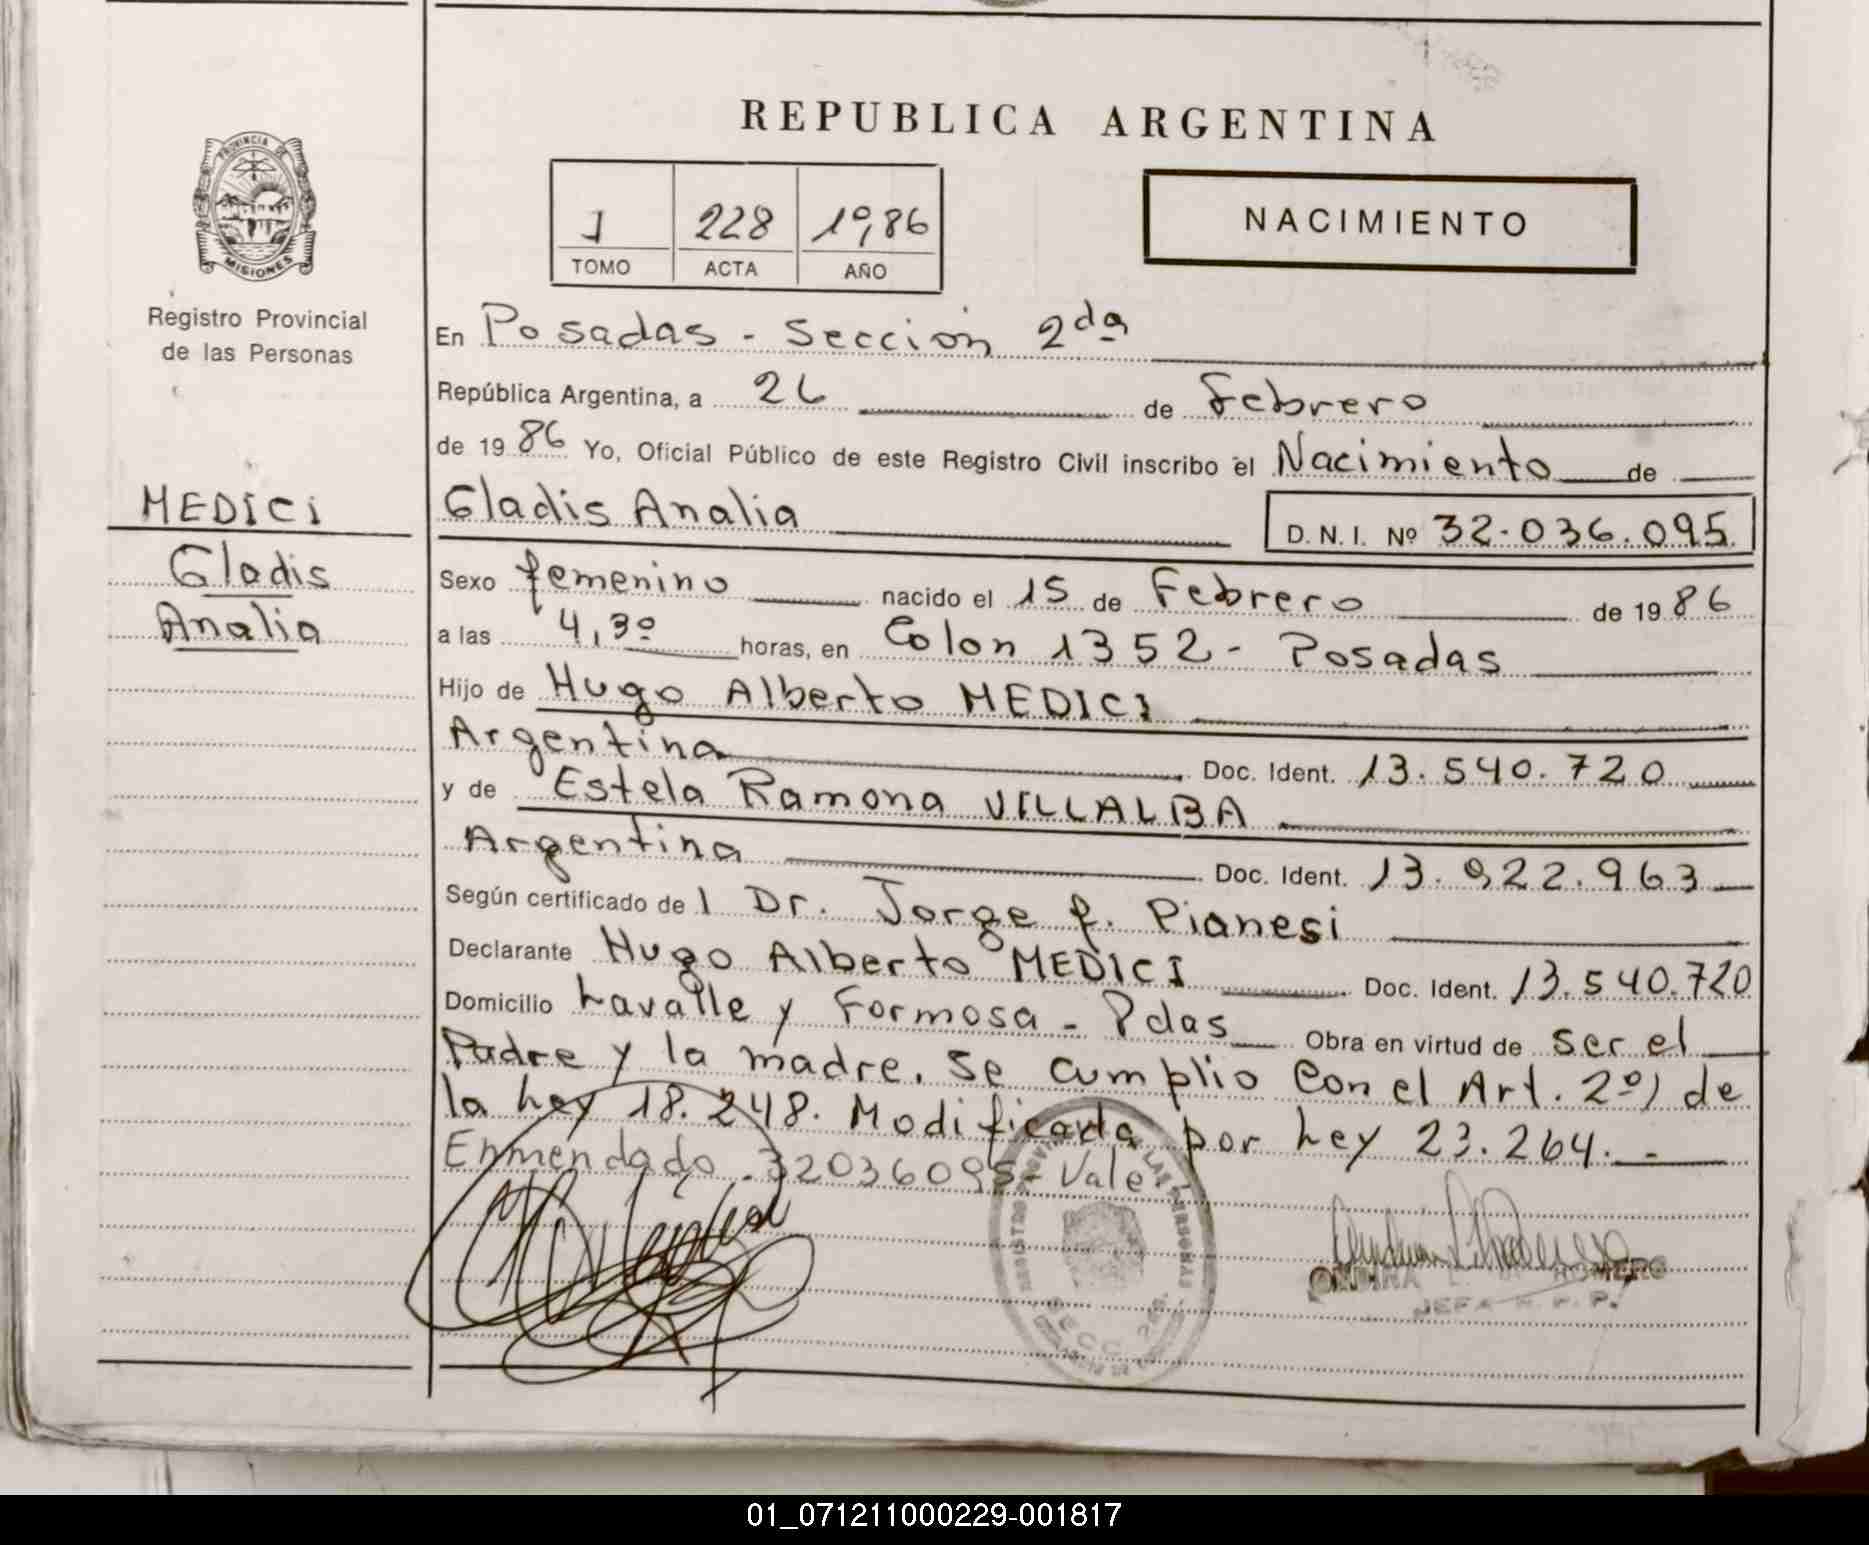 REPUBLICA ARGENTINA
PROVINCIA DE
MISIONES
Registro Provincial
de las Personas
1 228 1986
TOMO ACTA AÑO
NACIMIENTO
En Posadas - Sección 2da
República Argentina, a 26 de Febrero
de 1986 Yo, Oficial Público de este Registro Civil inscribo el Nacimiento de
MEDICI
Gladis
Analia
Gladis Analia
D. N. I. Nº 32.036.095
Sexo femenino nacido el 15 de Febrero de 1986
a las 4,30 horas, en Colon 1352 - Posadas
Hijo de Hugo Alberto MEDICI
Argentina Doc. Ident. 13.540.720
y de Estela Ramona VILLALBA
Argentina Doc. Ident. 13.922.963
Según certificado de l Dr. Jorge f. Pianesi
Declarante Hugo Alberto MEDICI Doc. Ident. 13.540.720
Domicilio Lavalle y Formosa - Pdas Obra en virtud de ser el
Padre y la madre. Se cumplio con el Art. 2º) de
la Ley 18.248. Modificada por Ley 23.264.-
Enmendado 32036095 - Vale
REGISTRO PROVINCIAL DE LAS PERSONAS
SECC. 2da.
ROMERO
JEFA R. P. P.
01_071211000229-001817